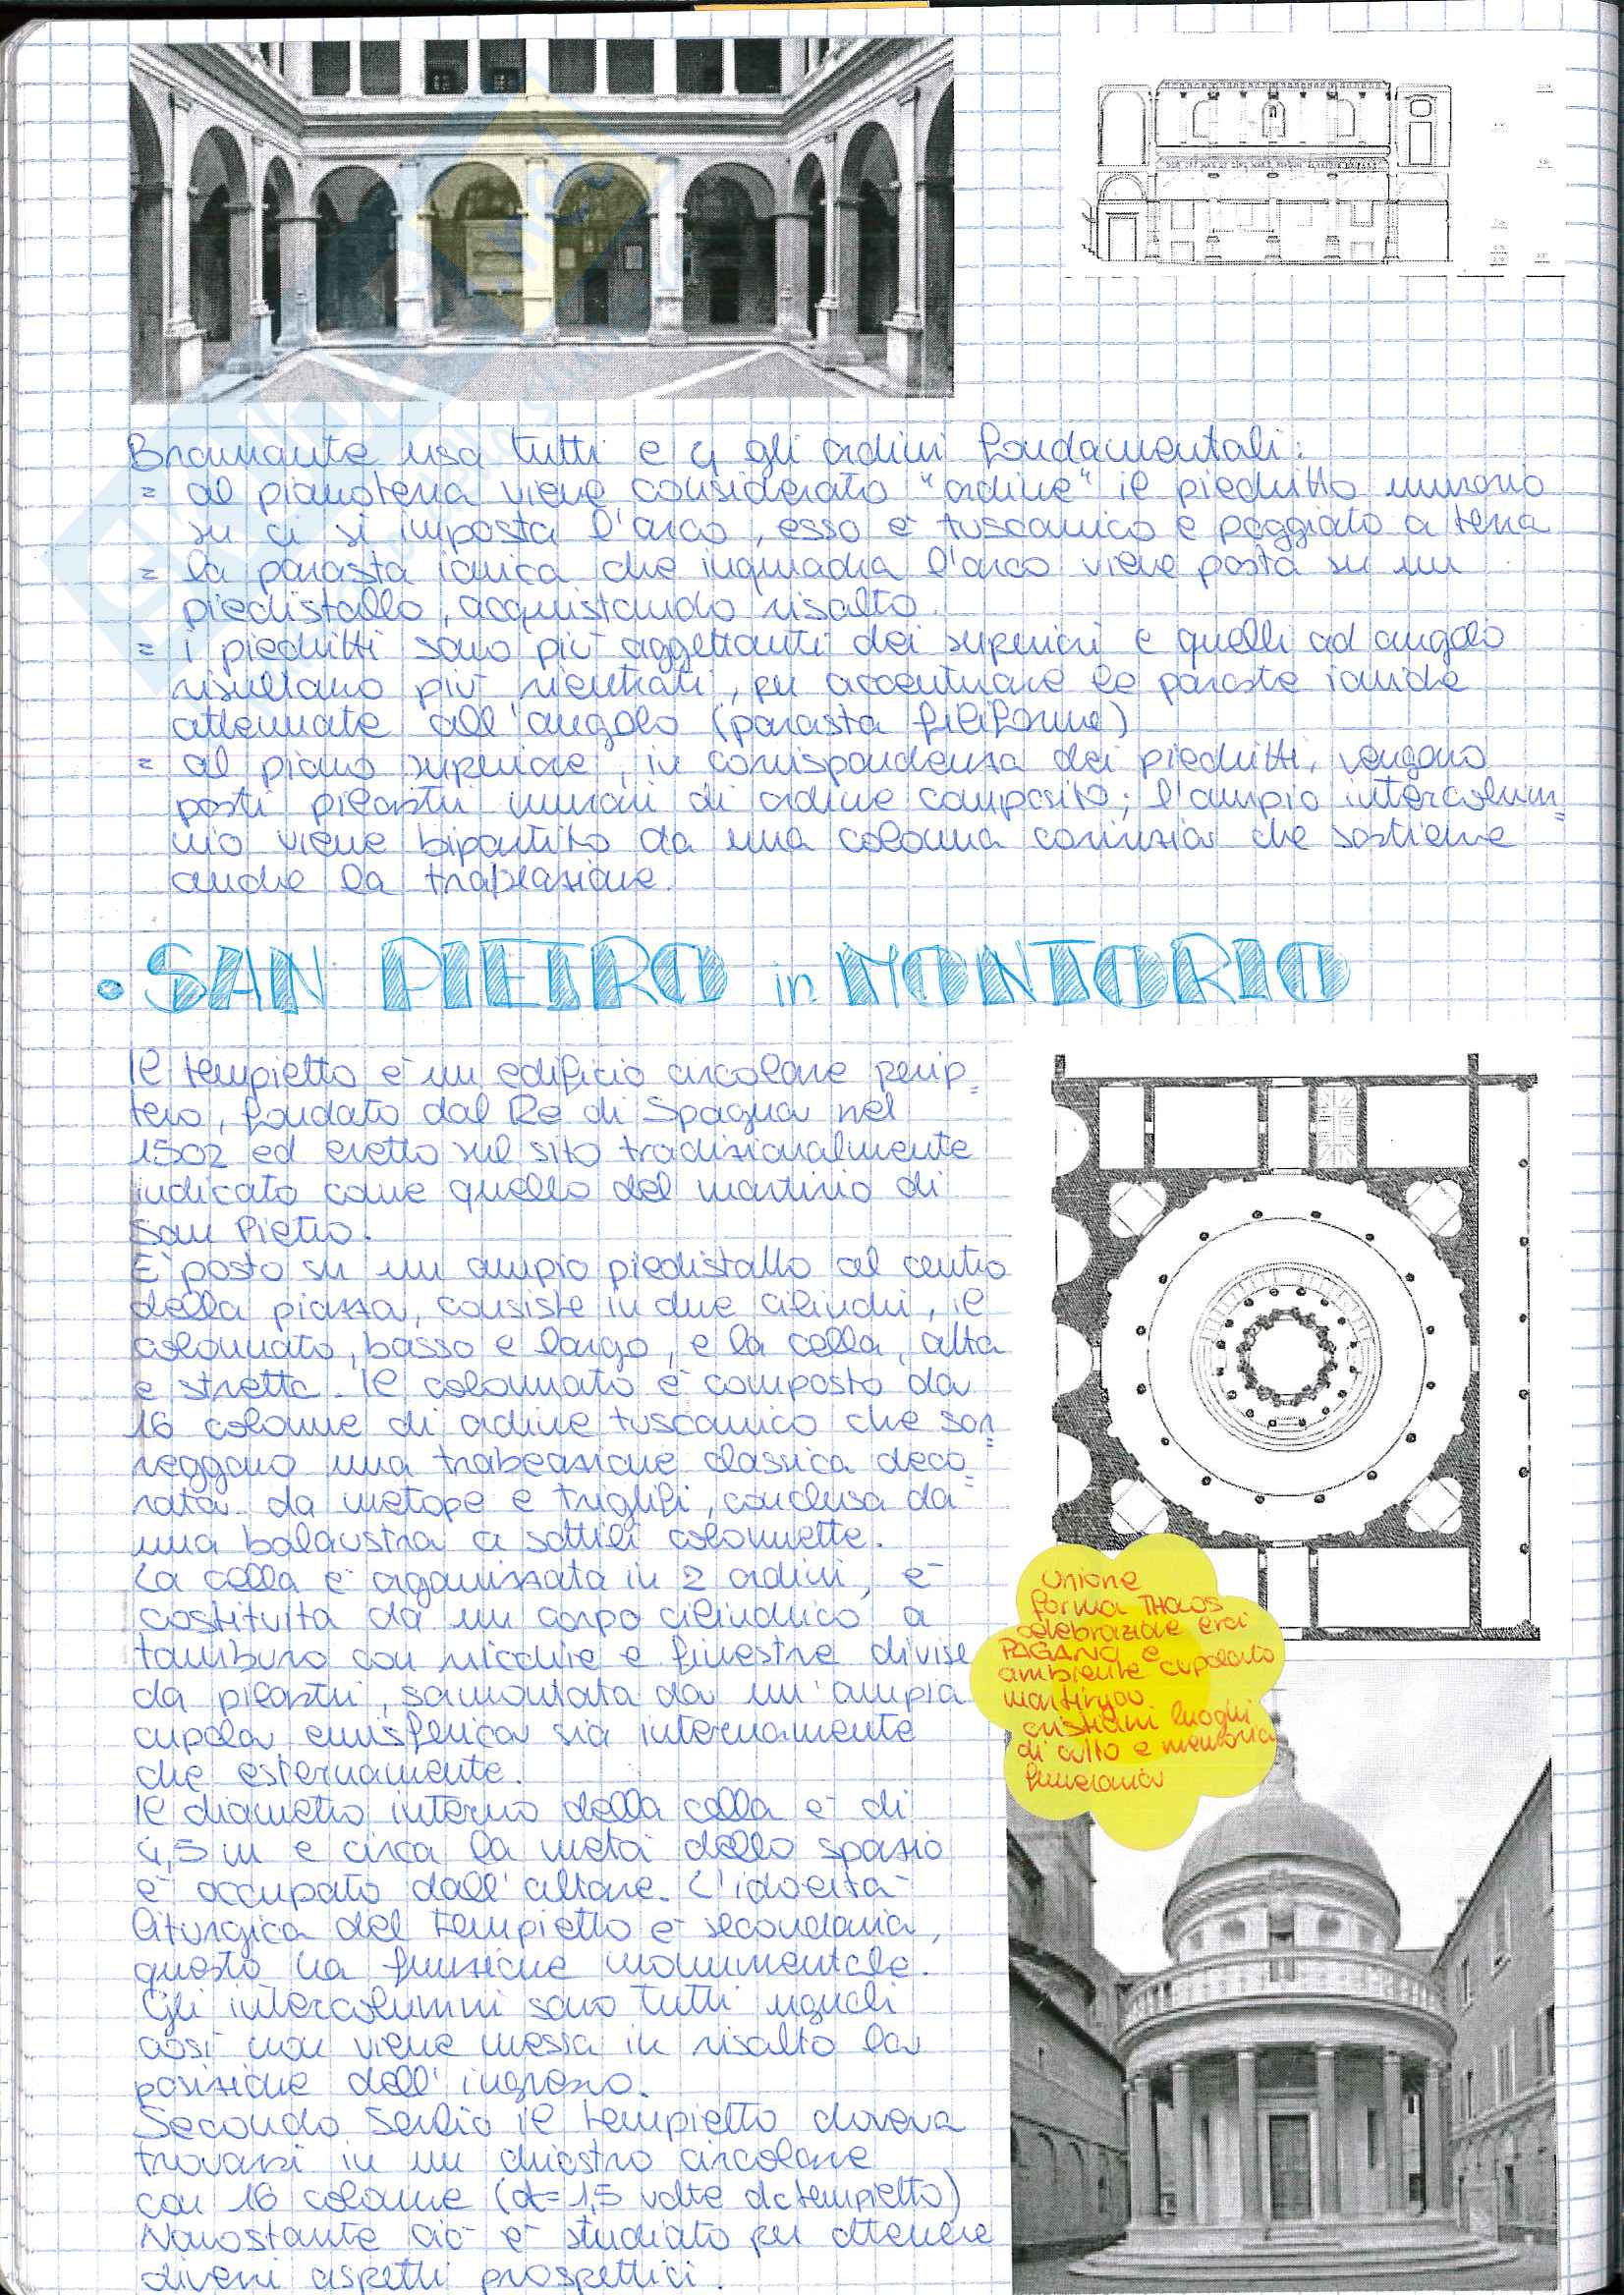 Bramante usa tutti e 4 gli ordini fondamentali:
= al pianoterra viene considerato "ordine" il piedritto murario
su ci si imposta l'arco, esso è tuscanico e poggiato a terra
= la parasta ionica che inquadra l'arco viene posta su un
piedistallo, acquistando risalto.
= i piedritti sono più aggettanti dei superiori e quelli ad angolo
risultano più rientrati, per accentuare le paraste ioniche
attenuate all'angolo (parasta filiforme)
= al piano superiore, in corrispondenza dei piedritti, vengono
posti pilastri murari di ordine composito; l'ampio intercolum=
nio viene bipartito da una colonna corinzia che sostiene
anche la trabeazione.
• SAN PIETRO in MONTORIO
Il tempietto è un edificio circolare perip=
tero, fondato dal Re di Spagna nel
1502 ed eretto sul sito tradizionalmente
indicato come quello del martirio di
San Pietro.
E' posto su un ampio piedistallo al centro
della piazza, consiste in due cilindri, il
colonnato, basso e largo, e la cella, alta
e stretta. Il colonnato è composto da
16 colonne di ordine tuscanico che sor=
reggono una trabeazione classica deco=
rata da metope e triglifi, conclusa da
una balaustra a sottili colonnette.
La cella è organizzata in 2 ordini, è
costituita da un corpo cilindrico a
tamburo con nicchie e finestre divise
da pilastri, sormontata da un'ampia
cupola emisferica sia internamente
che esternamente.
Il diametro interno della cella è di
4,5 m e circa la metà dello spazio
è occupato dall'altare. L'idoeità
liturgica del tempietto è secondaria,
questo ha funzione monumentale.
Gli intercolumni sono tutti uguali
così non viene messa in risalto la
posizione dell'ingresso.
Secondo Serlio il tempietto doveva
trovarsi in un chiostro circolare
con 16 colonne (d=1,5 volte d tempietto)
Nonostante ciò è studiato per ottenere
diversi aspetti prospettici.
unione
forma THOLOS
celebrazione eroi
PAGANO e
ambiente cupolato
martiryon
cristiani luoghi
di culto e memoria
funeraria